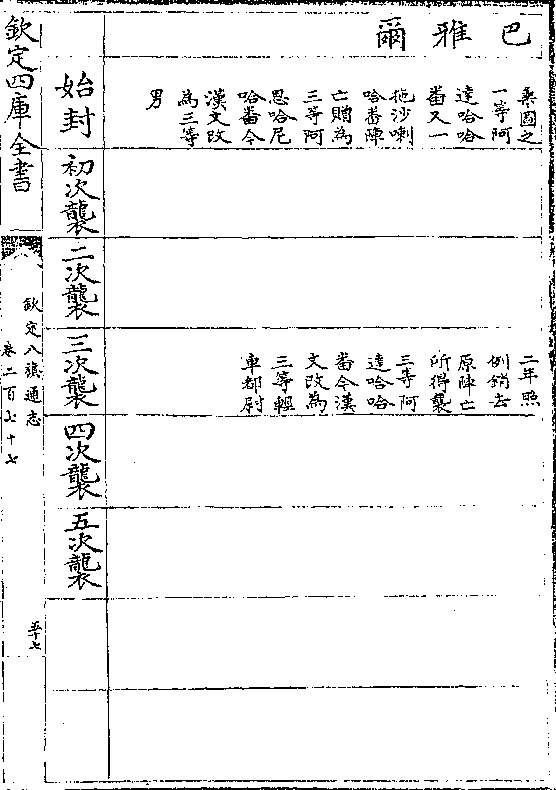 巴雅爾
始封
桑圖之
一等阿
達哈哈
畨又一
拖沙喇
哈畨陣
亡贈為
三等阿
思哈尼
哈畨今
漢文改
為三等
男
初次襲
二次襲
三次襲
二年照
例銷去
原陣亡
所得襲
三等阿
達哈哈
畨今漢
文改為
三等輕
車都尉
四次襲
五次襲
欽定四庫全書
欽定八旗通志
卷二百七十七
五十七